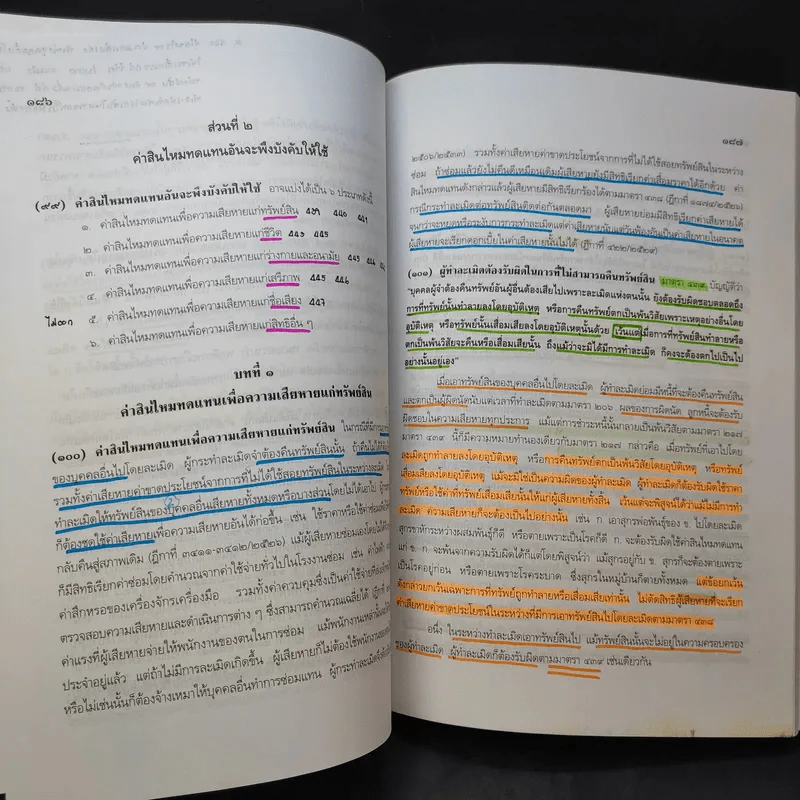 ๑๘๖
ส่วนที่ ๒
ค่าสินไหมทดแทนอันจะพึงบังคับให้ใช้
(๙๙) ค่าสินไหมทดแทนอันจะพึงบังคับให้ใช้ อาจแบ่งได้เป็น ๖ ประเภทดังนี้
๑. ค่าสินไหมทดแทนเพื่อความเสียหายแก่ทรัพย์สิน ๔๓๙ ๔๔๐ ๔๔๑
๒. ค่าสินไหมทดแทนเพื่อความเสียหายแก่ชีวิต ๔๔๓ ๔๔๕
๓. ค่าสินไหมทดแทนเพื่อความเสียหายแก่ร่างกายและอนามัย ๔๔๕ ๔๔๔
๔. ค่าสินไหมทดแทนเพื่อความเสียหายแก่เสรีภาพ ๔๔๕ ๔๔๖
๕. ค่าสินไหมทดแทนเพื่อความเสียหายแก่ชื่อเสียง ๔๔๗
๖. ค่าสินไหมทดแทนเพื่อความเสียหายแก่สิทธิอื่น ๆ
บทที่ ๑
ค่าสินไหมทดแทนเพื่อความเสียหายแก่ทรัพย์สิน
(๑๐๐) ค่าสินไหมทดแทนเพื่อความเสียหายแก่ทรัพย์สิน ในกรณีที่มีการ
ของบุคคลอื่นไปโดยละเมิด ผู้กระทำละเมิดจำต้องคืนทรัพย์สินนั้น ถ้าคืนไม่ได้ต้อง
รวมทั้งค่าเสียหายค่าขาดประโยชน์จากการที่ไม่ได้ใช้สอยทรัพย์สินในระหว่างละเมิด
ทำละเมิดให้ทรัพย์สินของบุคคลอื่นเสียหายทั้งหมดหรือบางส่วนโดยไม่ได้เอาไป
ก็ต้องชดใช้ค่าเสียหายเพื่อความเสียหายอันได้ก่อขึ้น เช่น ใช้ราคาหรือใช้ค่าซ่อมเพื่อ
กลับคืนสู่สภาพเดิม (ฎีกาที่ ๓๔๑๑-๓๔๑๒/๒๕๒๖) แม้ผู้เสียหายซ่อมเองโดยไม่ได้
ก็มีสิทธิเรียกค่าซ่อมโดยคำนวณจากค่าใช้จ่ายทั่วไปในโรงงานซ่อม เช่น ค่าโสหุ้ย
ค่าสึกหรอของเครื่องจักรเครื่องมือ รวมทั้งค่าควบคุมซึ่งเป็นค่าใช้จ่าย
ตรวจสอบความเสียหายและดำเนินการต่าง ๆ ซึ่งสามารถคำนวณเฉลี่ยได้ (ฎีกาที่
ค่าแรงที่ผู้เสียหายจ่ายให้พนักงานของตนในการซ่อม แม้พนักงานเหล่านั้น
ประจำอยู่แล้ว แต่ถ้าไม่มีการละเมิดเกิดขึ้น ผู้เสียหายก็ไม่ต้องใช้พนักงานของ
หรือไม่เช่นนั้นก็ต้องจ้างเหมาให้บุคคลอื่นทำการซ่อมแทน ผู้กระทำละเมิดจึง
๑๘๗
๒๕๐๖/๒๕๓๓) รวมทั้งค่าเสียหายค่าขาดประโยชน์จากการที่ไม่ได้ใช้สอยทรัพย์สินในระหว่าง
ซ่อม ถ้าซ่อมแล้วยังไม่คืนดีเหมือนเดิมผู้เสียหายยังมีสิทธิเรียกค่าเสื่อมราคาได้อีกด้วย ค่า
สินไหมทดแทนดังกล่าวแล้วผู้เสียหายมีสิทธิเรียกร้องได้ตามมาตรา ๔๓๘ (ฎีกาที่ ๑๑๗๔/๒๕๒๖)
กรณีกระทำละเมิดต่อทรัพย์สินติดต่อกันตลอดมา ผู้เสียหายย่อมมีสิทธิเรียกค่าเสียหายได้
จนกว่าจะหยุดหรือระงับการกระทำละเมิดแต่ค่าเสียหายนับแต่วันฟ้องอันเป็นค่าเสียหายในอนาคต
ผู้เสียหายจะเรียกดอกเบี้ยในค่าเสียหายนั้นไม่ได้ (ฎีกาที่ ๔๒๒/๒๕๒๙)
(๑๐๑) ผู้ทำละเมิดต้องรับผิดในการที่ไม่สามารถคืนทรัพย์สิน มาตรา ๔๓๙ บัญญัติว่า
"บุคคลผู้จำต้องคืนทรัพย์อันผู้อื่นต้องเสียไปเพราะละเมิดแห่งตนนั้น ยังต้องรับผิดชอบตลอดถึง
การที่ทรัพย์นั้นทำลายลงโดยอุบัติเหตุ หรือการคืนทรัพย์ตกเป็นพ้นวิสัยเพราะเหตุอย่างอื่นโดย
อุบัติเหตุ หรือทรัพย์นั้นเสื่อมเสียลงโดยอุบัติเหตุนั้นด้วย เว้นแต่เมื่อการที่ทรัพย์สินทำลายหรือ
ตกเป็นพ้นวิสัยจะคืนหรือเสื่อมเสียนั้น ถึงแม้ว่าจะมิได้มีการทำละเมิด ก็คงจะต้องตกไปเป็น
อย่างนั้นอยู่เอง"
เมื่อเอาทรัพย์สินของบุคคลอื่นไปโดยละเมิด ผู้ทำละเมิดย่อมมีหนี้ที่จะต้องคืนทรัพย์สิน
และตกเป็นผู้ผิดนัดนับแต่เวลาที่ทำละเมิดตามมาตรา ๒๐๖ ผลของการผิดนัด ลูกหนี้จะต้องรับ
ผิดชอบในความเสียหายทุกประการ แม้แต่การชำระหนี้นั้นกลายเป็นพ้นวิสัยตามมาตรา ๒๑๗
มาตรา ๔๓๙ นี้ก็มีความหมายทำนองเดียวกับมาตรา ๒๑๗ กล่าวคือ เมื่อทรัพย์ที่เอาไปโดย
ละเมิดถูกทำลายลงโดยอุบัติเหตุ หรือการคืนทรัพย์ตกเป็นพ้นวิสัยโดยอุบัติเหตุ หรือทรัพย์
เสื่อมเสียลงโดยอุบัติเหตุ แม้จะมิใช่เป็นความผิดของผู้ทำละเมิด ผู้ทำละเมิดก็ต้องรับผิดใช้ราคา
ทรัพย์หรือใช้ค่าที่ทรัพย์สินเสื่อมเสียลงนั้นให้แก่ผู้เสียหายทั้งสิ้น เว้นแต่จะพิสูจน์ได้ว่าแม้ไม่มีการทำ
ละเมิด ความเสียหายก็จะต้องเป็นไปอย่างนั้น เช่น ก เอาสุกรพ่อพันธุ์ของ ข ไปโดยละเมิด
สุกรขาหักระหว่างผสมพันธุ์ก็ดี หรือตายเพราะเป็นโรคก็ดี ก. จะต้องรับผิดใช้ค่าสินไหมทดแทน
แก่ ข. ก. จะพ้นจากความรับผิดได้ก็แต่โดยพิสูจน์ว่า แม้สุกรอยู่กับ ข. สุกรก็จะต้องตายเพราะ
เป็นโรคอยู่ก่อน หรือตายเพราะโรคระบาด ซึ่งสุกรในหมู่บ้านก็ตายทั้งหมด แต่ข้อยกเว้น
ดังกล่าวยกเว้นเฉพาะการที่ทรัพย์ถูกทำลายหรือเสื่อมเสียเท่านั้น ไม่ตัดสิทธิผู้เสียหายที่จะเรียก
ค่าเสียหายค่าขาดประโยชน์ในระหว่างที่มีการเอาทรัพย์สินไปโดยละเมิดตามมาตรา ๔๓๘
อนึ่ง ในระหว่างทำละเมิดเอาทรัพย์สินไป แม้ทรัพย์สินนั้นจะไม่อยู่ในความครอบครอง
ของผู้ทำละเมิด ผู้ทำละเมิดก็ต้องรับผิดตามมาตรา ๔๓๙ เช่นเดียวกัน